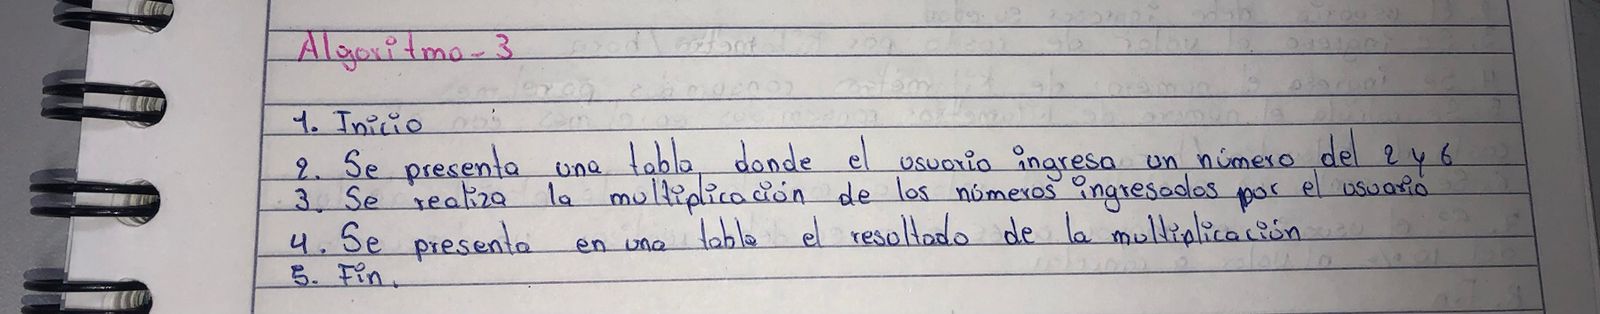 Algoritmo - 3
1. Inicio
2. Se presenta una tabla donde el usuario ingresa un número del 2 y 6
3. Se realiza la multiplicación de los números ingresados por el usuario
4. Se presenta en una tabla el resultado de la multiplicación
5. Fin.